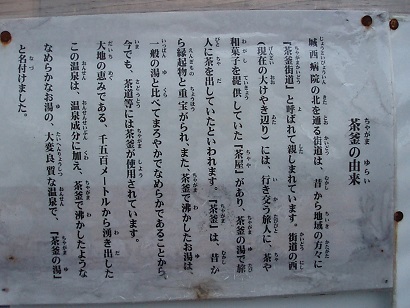 茶釜の由来
城西病院の北を通る街道は、昔から地域の方々に
『茶釜街道』と呼ばれて親しまれています。街道の西
(現在の大けやき辺り)には、行き交う旅人に、茶や
和菓子を提供していた『茶屋』があり、茶釜の湯で旅
人に茶を出していたといわれます。『茶釜』は、昔か
ら縁起物と重宝がられ、また、茶釜で沸かしたお湯は、
一般の湯と比べてまろやかでなめらかであることから、
今でも、茶道等には茶釜が使用されています。
大地の恵みである、千五百メートルから湧き出した
この温泉は、温泉成分に加え、茶釜で沸かしたような
なめらかなお湯の、大変良質な温泉で、『茶釜の湯』
と名付けました。